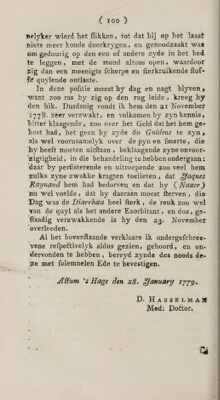 ( 100 )
nelyker wierd het slikken, tot dat hij op het laast
niets meer konde doorkrygen, en genoodzaakt was
om geduurig op den een of andere zyde in het bed
te leggen, met de mond altoos open, waardoor
zig dan een meenigte scherpe en sterkruikende stof-
fe quylende ontlaste.
In deze positie moest hy dag en nagt blyven,
want zoo ras hy zig op den rug leide, kreeg hy
den hik. Dusdanig vondt ik hem den 21 November
1778. zeer verzwakt, en volkomen by zyn kennis,
bitter klaagende, zoo over het Geld dat het hem ge-
kost had, het geen hy zyde 60 Guldens te zyn,
als wel voornaamelyk over de pyn en smerte, die
hy heeft moeten uitstaan, beklaagende zyne onvoor-
zigtigheid, in die behandeling te hebben ondergaan:
daar by persisteerende en uitroepende zoo veel hem
zulks zyne zwakke kragten toelieten, dat Jaques
Raynaud hem had bedorven en dat hy ( Nazer )
nu wel voelde, dat hy daaraan moest sterven, die
Dag was de Diarrhæa heel sterk, de reuk zoo wel
van de quyl als het andere Exorbitant, en dus, ge-
stadig verzwakkende is hy den 23. November
overleeden.
Al het bovenstaande verklaare ik ondergeschree-
vene respectivelyk aldus gezien, gehoord, en on-
dervonden te hebben, bereyd zynde des noods de-
ze met solemneelen Ede te bevestigen.
Actum 's Hage den 28. January 1779.
D. HASSELMAN
Med: Doctor.